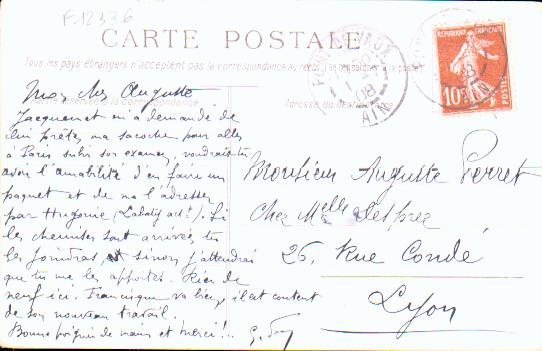 F.12336
CARTE POSTALE
Tous les pays étrangers n'acceptent pas la correspondance au recto
Mon cher Auguste
La correspondance
Adresse du destinataire
Jacquemet m'a demandé de
lui prêter ma sacoche pour aller
à Paris subir son examen, voudrais-tu
avoir l'amabilité d'en faire un
paquet et de me l'adresser
par Hugonie (Labaly ). Si
les chemises sont arrivées tu
les joindras et sinon j'attendrai
que tu me les apportes. Rien de
neuf ici. Francisque va bien, il est content
de son nouveau travail.
Bonne poignée de mains et merci!..
Monsieur Auguste Perret
Chez Melle Desprez
26, Rue Condé
Lyon
RÉPUBLIQUE FRANÇAISE
10c
POSTES
VAUX
08
AIN
08
AIN